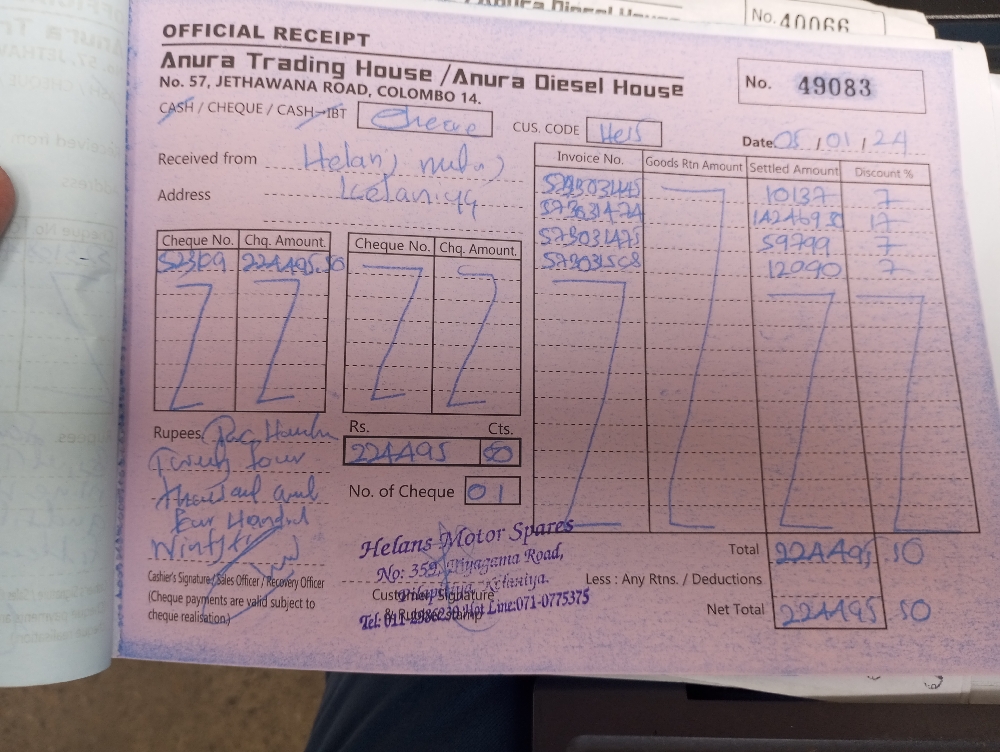 No. 40066
OFFICIAL RECEIPT
Anura Trading House / Anura Diesel House
No. 57, JETHAWANA ROAD, COLOMBO 14.
No. 49083
CASH / CHEQUE / CASH-IBT Cheque
CUS. CODE He15
Date 05 / 01 / 24
Received from Helans
Address Kelaniya
Cheque No. Chq. Amount. Cheque No. Chq. Amount.
224495.50
Invoice No. Goods Rtn Amount Settled Amount Discount %
10137 7
573031474 142469.50 17
573031475 59799 7
573031508 12090 7
Rupees
Twenty four
Thousand and
Four Hundred
Rs. Cts.
224495 50
No. of Cheque 01
Cashier's Signature / Sales Officer / Recovery Officer
(Cheque payments are valid subject to
cheque realisation.)
Customer Signature
& Rubber Stamp
Helans Motor Spares
No: 359, Biyagama Road,
Kelaniya.
Hot Line:071-0775375
Total 224495 50
Less : Any Rtns. / Deductions
Net Total 224495 50